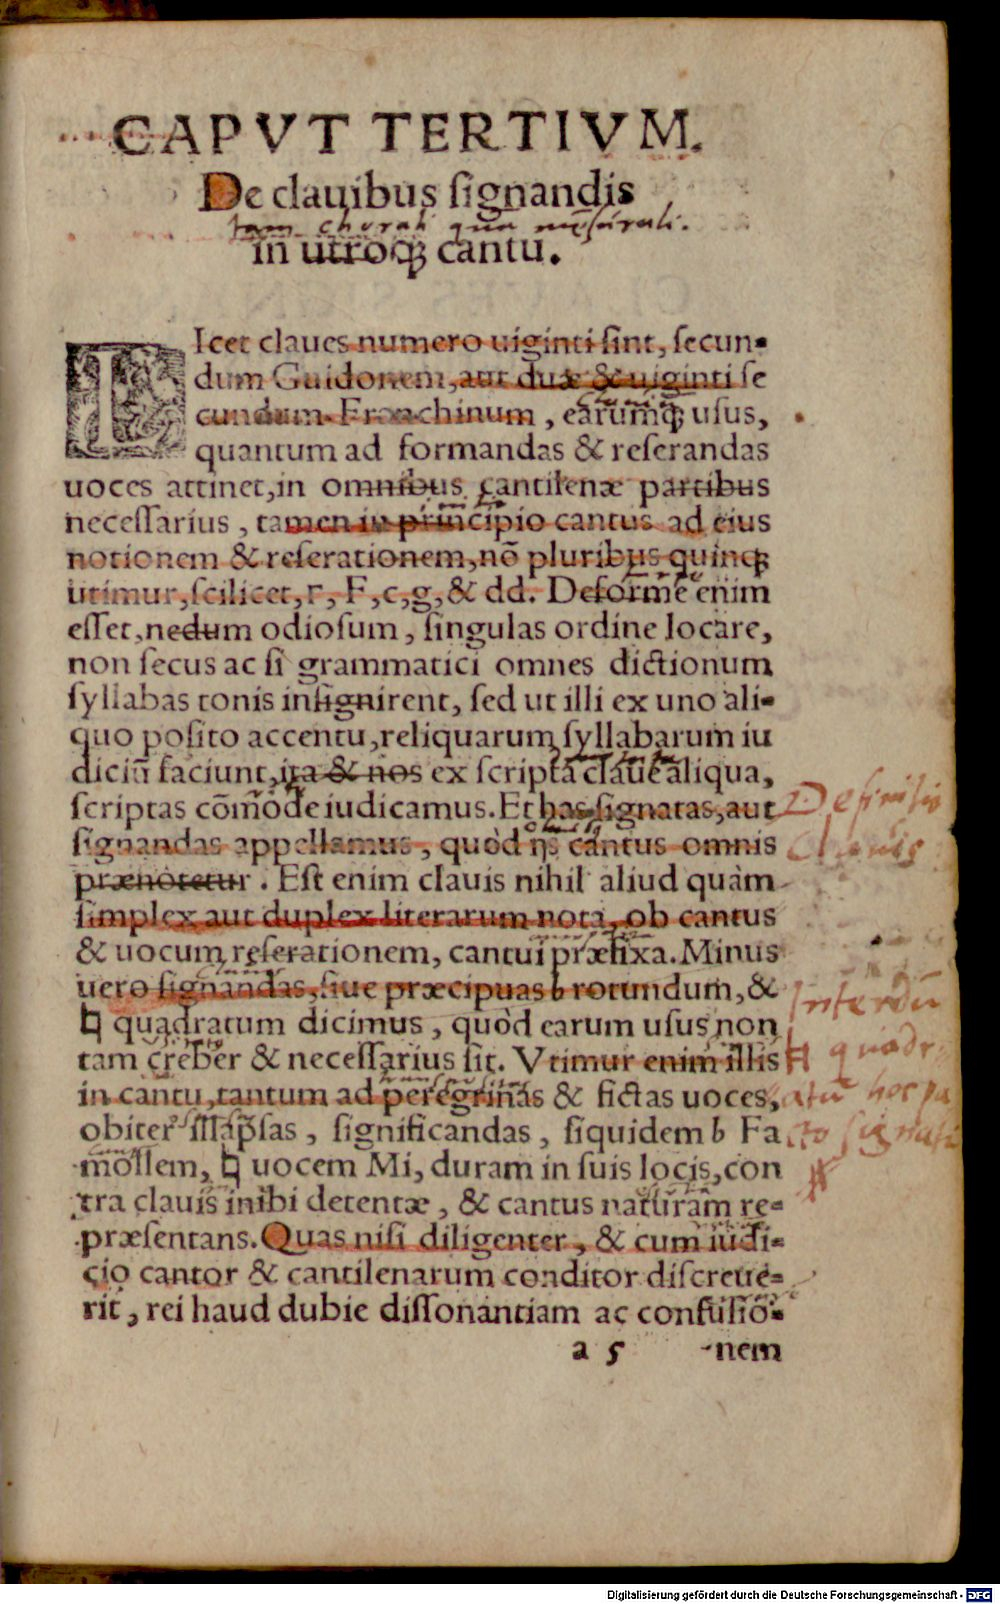 CAPVT TERTIVM.
De clauibus signandis
tam chorali qua mensurali.
in utroq₃ cantu.
LIcet claues numero uiginti sint, secun-
dum Guidonem, aut duæ & uiginti se
cundum Franchinum, earumq₃ usus,
quantum ad formandas & reserandas
uoces attinet, in omnibus cantilenæ partibus
necessarius, tamen in principio cantus ad eius
notionem & reserationem, nō pluribus quinq₃
utimur, scilicet, Γ, F, c, g, & dd. Deforme enim
esset, nedum odiosum, singulas ordine locare,
non secus ac si grammatici omnes dictionum
syllabas tonis insignirent, sed ut illi ex uno ali-
quo posito accentu, reliquarum syllabarum iu
diciū faciunt, ita & nos ex scripta claue aliqua,
scriptas cōmode iudicamus. Et has signatas, aut
Definitio
signandas appellamus, quòd ijs cantus omnis
Clauis
prænotetur. Est enim clauis nihil aliud quàm
simplex aut duplex literarum nota, ob cantus
& uocum reserationem, cantui præfixa. Minus
uero signandas, siue præcipuas b rotundum, &
Interdū
♮ quadratum dicimus, quòd earum usus non
tam creber & necessarius sit. Vtimur enim illis
♮ quadr-
in cantu, tantum ad peregrinas & fictas uoces,
atū hoc pa
obiter illapsas, significandas, siquidem b Fa
cto signati
mollem, ♮ uocem Mi, duram in suis locis, con
tra clauis inibi detentæ, & cantus naturam re-
præsentans. Quas nisi diligenter, & cum iudi-
cio cantor & cantilenarum conditor discreue-
rit, rei haud dubie dissonantiam ac confusio-
a 5 -nem
Digitalisierung gefördert durch die Deutsche Forschungsgemeinschaft - DFG